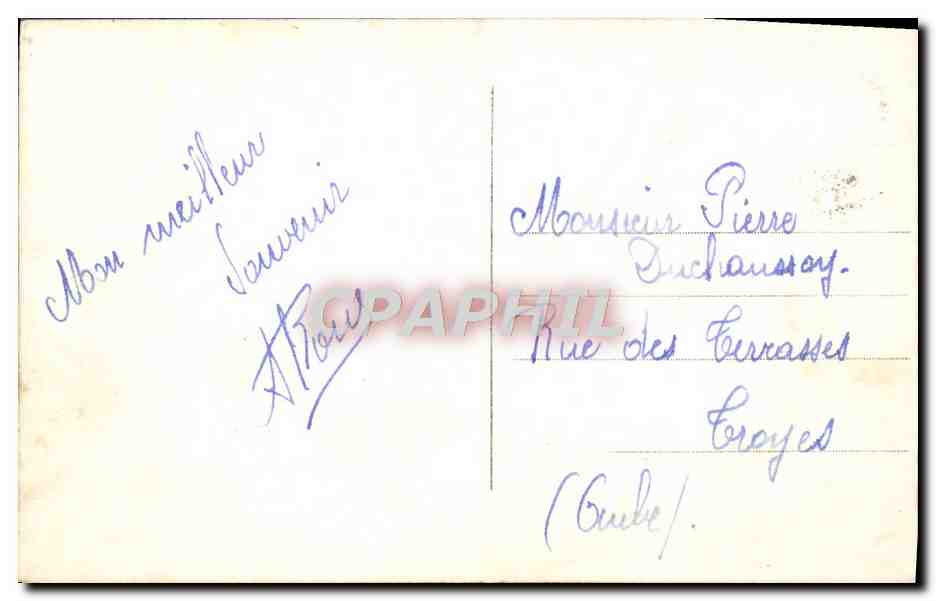 Mon meilleur
Souvenir
CPAPHIL
Monsieur Pierre
Duchaussoy.
Rue des Terrasses
Troyes
(Aube).